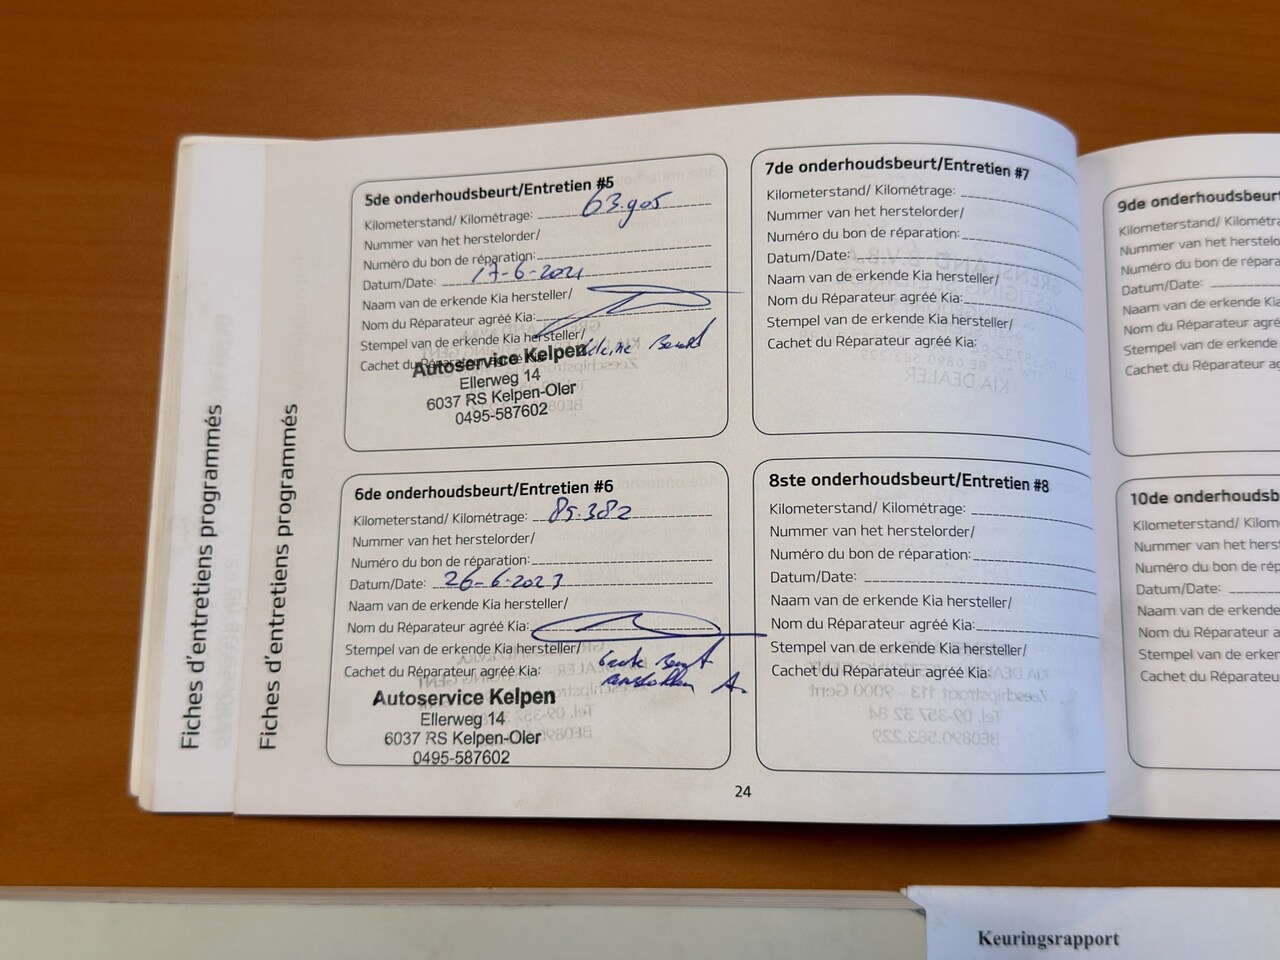 Fiches d'entretiens programmés
Fiches d'entretiens programmés
5de onderhoudsbeurt/Entretien #5
Kilometerstand/ Kilométrage: 63.905
Nummer van het herstelorder/
Numéro du bon de réparation:
Datum/Date: 17-6-2021
Naam van de erkende Kia hersteller/
Nom du Réparateur agréé Kia:
Stempel van de erkende Kia hersteller/
Cachet du Réparateur agréé Kia: kleine Beurt
Autoservice Kelpen
Ellerweg 14
6037 RS Kelpen-Oler
0495-587602
6de onderhoudsbeurt/Entretien #6
Kilometerstand/ Kilométrage: 85.382
Nummer van het herstelorder/
Numéro du bon de réparation:
Datum/Date: 26-6-2023
Naam van de erkende Kia hersteller/
Nom du Réparateur agréé Kia:
Stempel van de erkende Kia hersteller/
Cachet du Réparateur agréé Kia: Grote Beurt
A.
Autoservice Kelpen
Ellerweg 14
6037 RS Kelpen-Oler
0495-587602
7de onderhoudsbeurt/Entretien #7
Kilometerstand/ Kilométrage:
Nummer van het herstelorder/
Numéro du bon de réparation:
Datum/Date:
Naam van de erkende Kia hersteller/
Nom du Réparateur agréé Kia:
Stempel van de erkende Kia hersteller/
Cachet du Réparateur agréé Kia:
8ste onderhoudsbeurt/Entretien #8
Kilometerstand/ Kilométrage:
Nummer van het herstelorder/
Numéro du bon de réparation:
Datum/Date:
Naam van de erkende Kia hersteller/
Nom du Réparateur agréé Kia:
Stempel van de erkende Kia hersteller/
Cachet du Réparateur agréé Kia:
24
9de onderhoudsbeurt
Kilometerstand/ Kilométra
Nummer van het herstelo
Numéro du bon de répara
Datum/Date:
Naam van de erkende Kia
Nom du Réparateur agréé
Stempel van de erkende
Cachet du Réparateur ag
10de onderhoudsb
Kilometerstand/ Kilom
Nummer van het herst
Numéro du bon de rép
Datum/Date:
Naam van de erkende
Nom du Réparateur a
Stempel van de erken
Cachet du Réparateur
Keuringsrapport